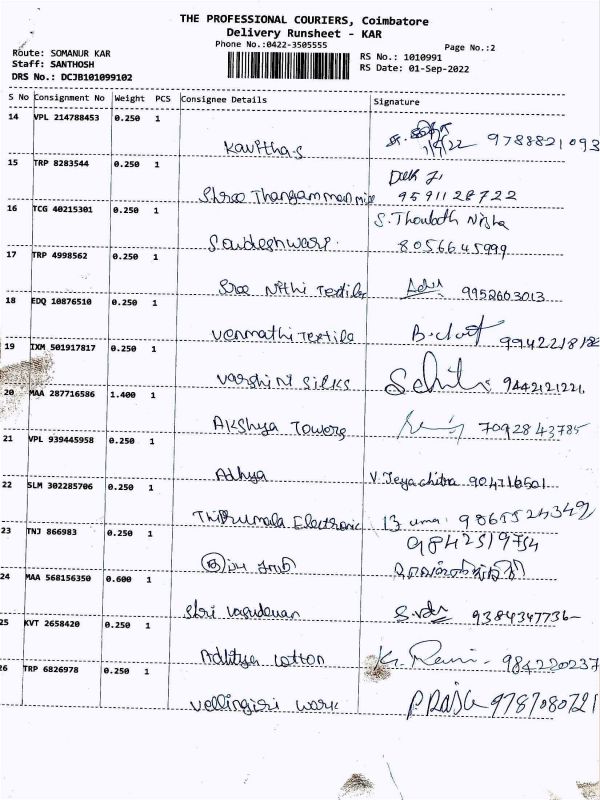 THE PROFESSIONAL COURIERS, Coimbatore
Delivery Runsheet - KAR
Phone No.:0422-3505555
Page No.:2
Route: SOMANUR KAR
Staff: SANTHOSH
DRS No.: DCJB101099102
RS No.: 1010991
RS Date: 01-Sep-2022
S No Consignment No Weight PCS Consignee Details Signature
14 VPL 214788453 0.250 1
Kavitha-s 1/9/22 9788821093
15 TRP 8283544 0.250 1
Shree Thangamman 9591128722
16 TCG 40215301 0.250 1 S. Thowlath Nisha
Soudeshwari 8056645999
17 TRP 4998562 0.250 1
Sree Nithi Textiles 9952603013
18 EDQ 10876510 0.250 1
Venmathi Textile
19 IXM 501917817 0.250 1
Varshini Silks 9442121221
20 MAA 287716586 1.400 1
Akshya Towers 7092843785
21 VPL 939445958 0.250 1
Adhya V. Jeyachitra
22 SLM 302285706 0.250 1
Thirumala Electronic uma
23 TNJ 866983 0.250 1 9842519754
24 MAA 568156350 0.600 1
Shri Vasudevan 9384347736
25 KVT 2658420 0.250 1
Adhitya cotton K. Rani - 984220237
26 TRP 6826978 0.250 1
Vellingiri work P. RAJA 9787080721